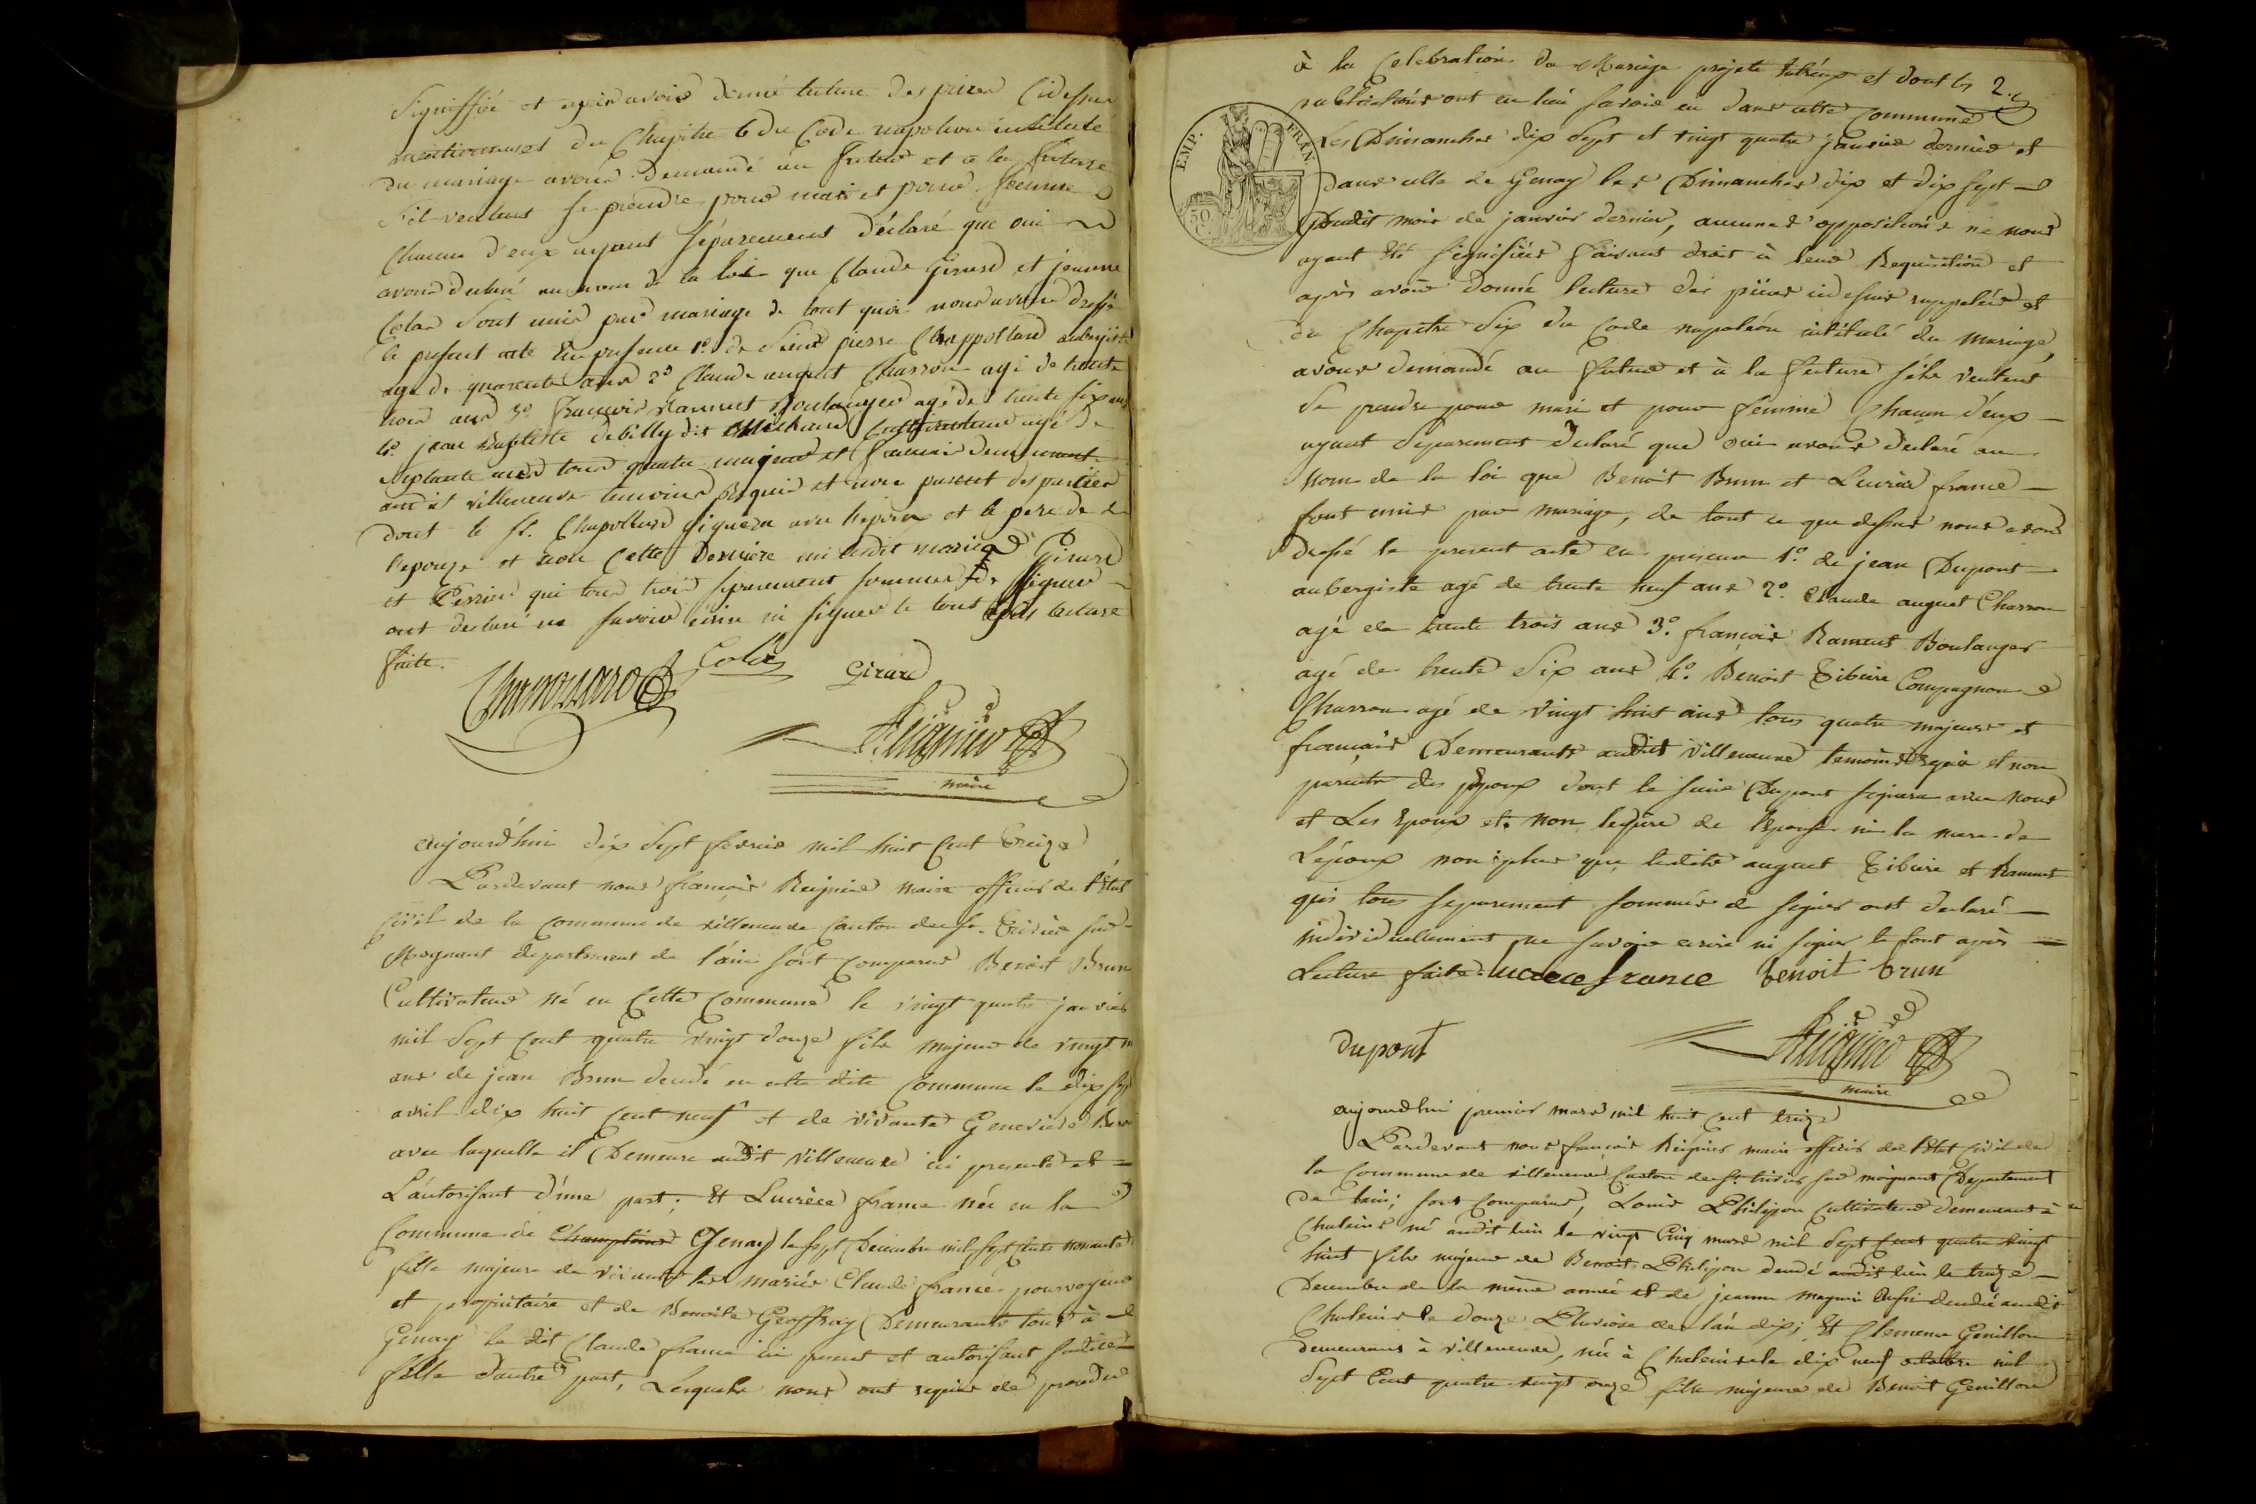 Signiffié et après avoir donné lecture des pieces Cidessus
mentionnées du Chapitre 6 du Code napoleon intitulé
du mariage avons demandé au futur et a la future
s'il veulent se prendre pour mari et pour femme
Chacun d'eux ayant séparement déclaré que oui
avons declaré au nom de la loi que Claude Girard et jeanne
Colas sont unis par mariage de tout quoi nous avons dressé
le present acte En presence 1º de Sieur pierre Chappolard aubergiste
agé de quarante ans 2º Claude auguet Charron agé de trente
trois ans 3º francois Ramuet Boulanger agé de trente six ans
4º jean Baptiste debilly dit Cultivateur agé de
Septante ans tous quatre majeurs et francais demeurant
audit villeneuve temoins Requis et non parent des parties
dont le sr. Chapollard signera avec l'epoux et le pere de
l'epouse et non Cette derniere ni Girard
et qui tous trois séparement sommés de signer
ont declaré ne savoir écrire ni signer le tout après lecture
faite.
Colas Girard
maire
aujourd'hui dix Sept fevrier mil huit Cent treize
Pardevant nous françois Reignier maire officier de l'Etat
Civil de la commune de villeneuve Canton de st. Trivier sur
Moignant departement de l'ain sont comparus Benoit Brun
Cultivateur né en Cette Commune le vingt quatre janvier
mil Sept Cent quatre vingt douze fils majeur de vingt
ans de jean Brun decedé en cette dite Commune le dix sept
avril dix huit Cent neuf et de vivante Genevieve
avec laquelle il Demeure audit villeneuve ici presente et
L'autorisant d'une part; Et Lucrèce france née en la
Commune de Genay le sept Decembre mil sept Cent nonante
fille majeure de vivants les mariés Claude france pourvoyeur
et propriétaire et de Benoite Geoffray Demeurants tous à
Genay le dit Claude france ici present et autorisant sadite
fille d'autre part, Lesquels nous ont requis de proceder
2.
à la Celebration du Mariage projeté entr'eux et dont les
publications ont eu lieu savoir en dans cette Commune
Les Dimanches dix Sept et vingt quatre janvier dernier et
EMP. FRAN.
50 C.
Dans celle de Genay les Dimanches dix et dix sept
Dudit mois de janvier dernier, aucunes oppositions ne nous
ayant été signifiées faisant droit à leur Requisition et
après avoir donné lecture des pièces cidessus rappelées et
du Chapitre Six du Code napoléon intitulé du mariage
avons demandé au futur et à la future s'ils veulent
Se prendre pour mari et pour femme Chacun d'eux
ayant Séparement declaré que oui avons declaré au
Nom de la loi que Benoit Brun et Lucrèce france
sont unis par mariage, de tout ce que dessus nous avons
dressé le present acte en presence 1º. de jean Dupont
aubergiste agé de trente neuf ans 2º. Claude auguet Charron
agé de trente trois ans 3º. françois Ramuet Boulanger
agé de trente Six ans 4º. Benoit Tibere Compagnon
Charron agé de vingt huit ans tous quatre majeurs et
français Demeurants audit villeneuve temoins Requis et non
parents des époux dont le sieur Dupont signera avec nous
et Les Epoux et non le père de l'épouse ni la mere de
L'époux non plus que lesdits auguet Tibere et Ramuet
qui tous separement sommés de signer ont declaré
individuellement ne savoir ecrire ni signer le tout après
Lecture faite. lucrece france benoit brun
dupont
maire
aujourdhui premier mars mil huit Cent treize
Pardevant nous françois Reignier maire officier de l'Etat Civil de
la Commune de villeneuve Canton de st. trivier sur moignant Departement
de l'ain; sont comparus, Louis Philippon Cultivateur demeurant à
Chaleins né audit lieu le vingt Cinq mars mil Sept Cent quatre vingt
huit fils majeur de Benoit Philippon decedé audit lieu le treize
Decembre de la même année et de jeanne decedée audit
Chaleins le douze Pluviose de l'an dix; Et Clemence Genillon
Demeurant à villeneuve, née à Chaleins le dix neuf octobre mil
Sept Cent quatre vingt onze fille majeure de Benoit Genillon